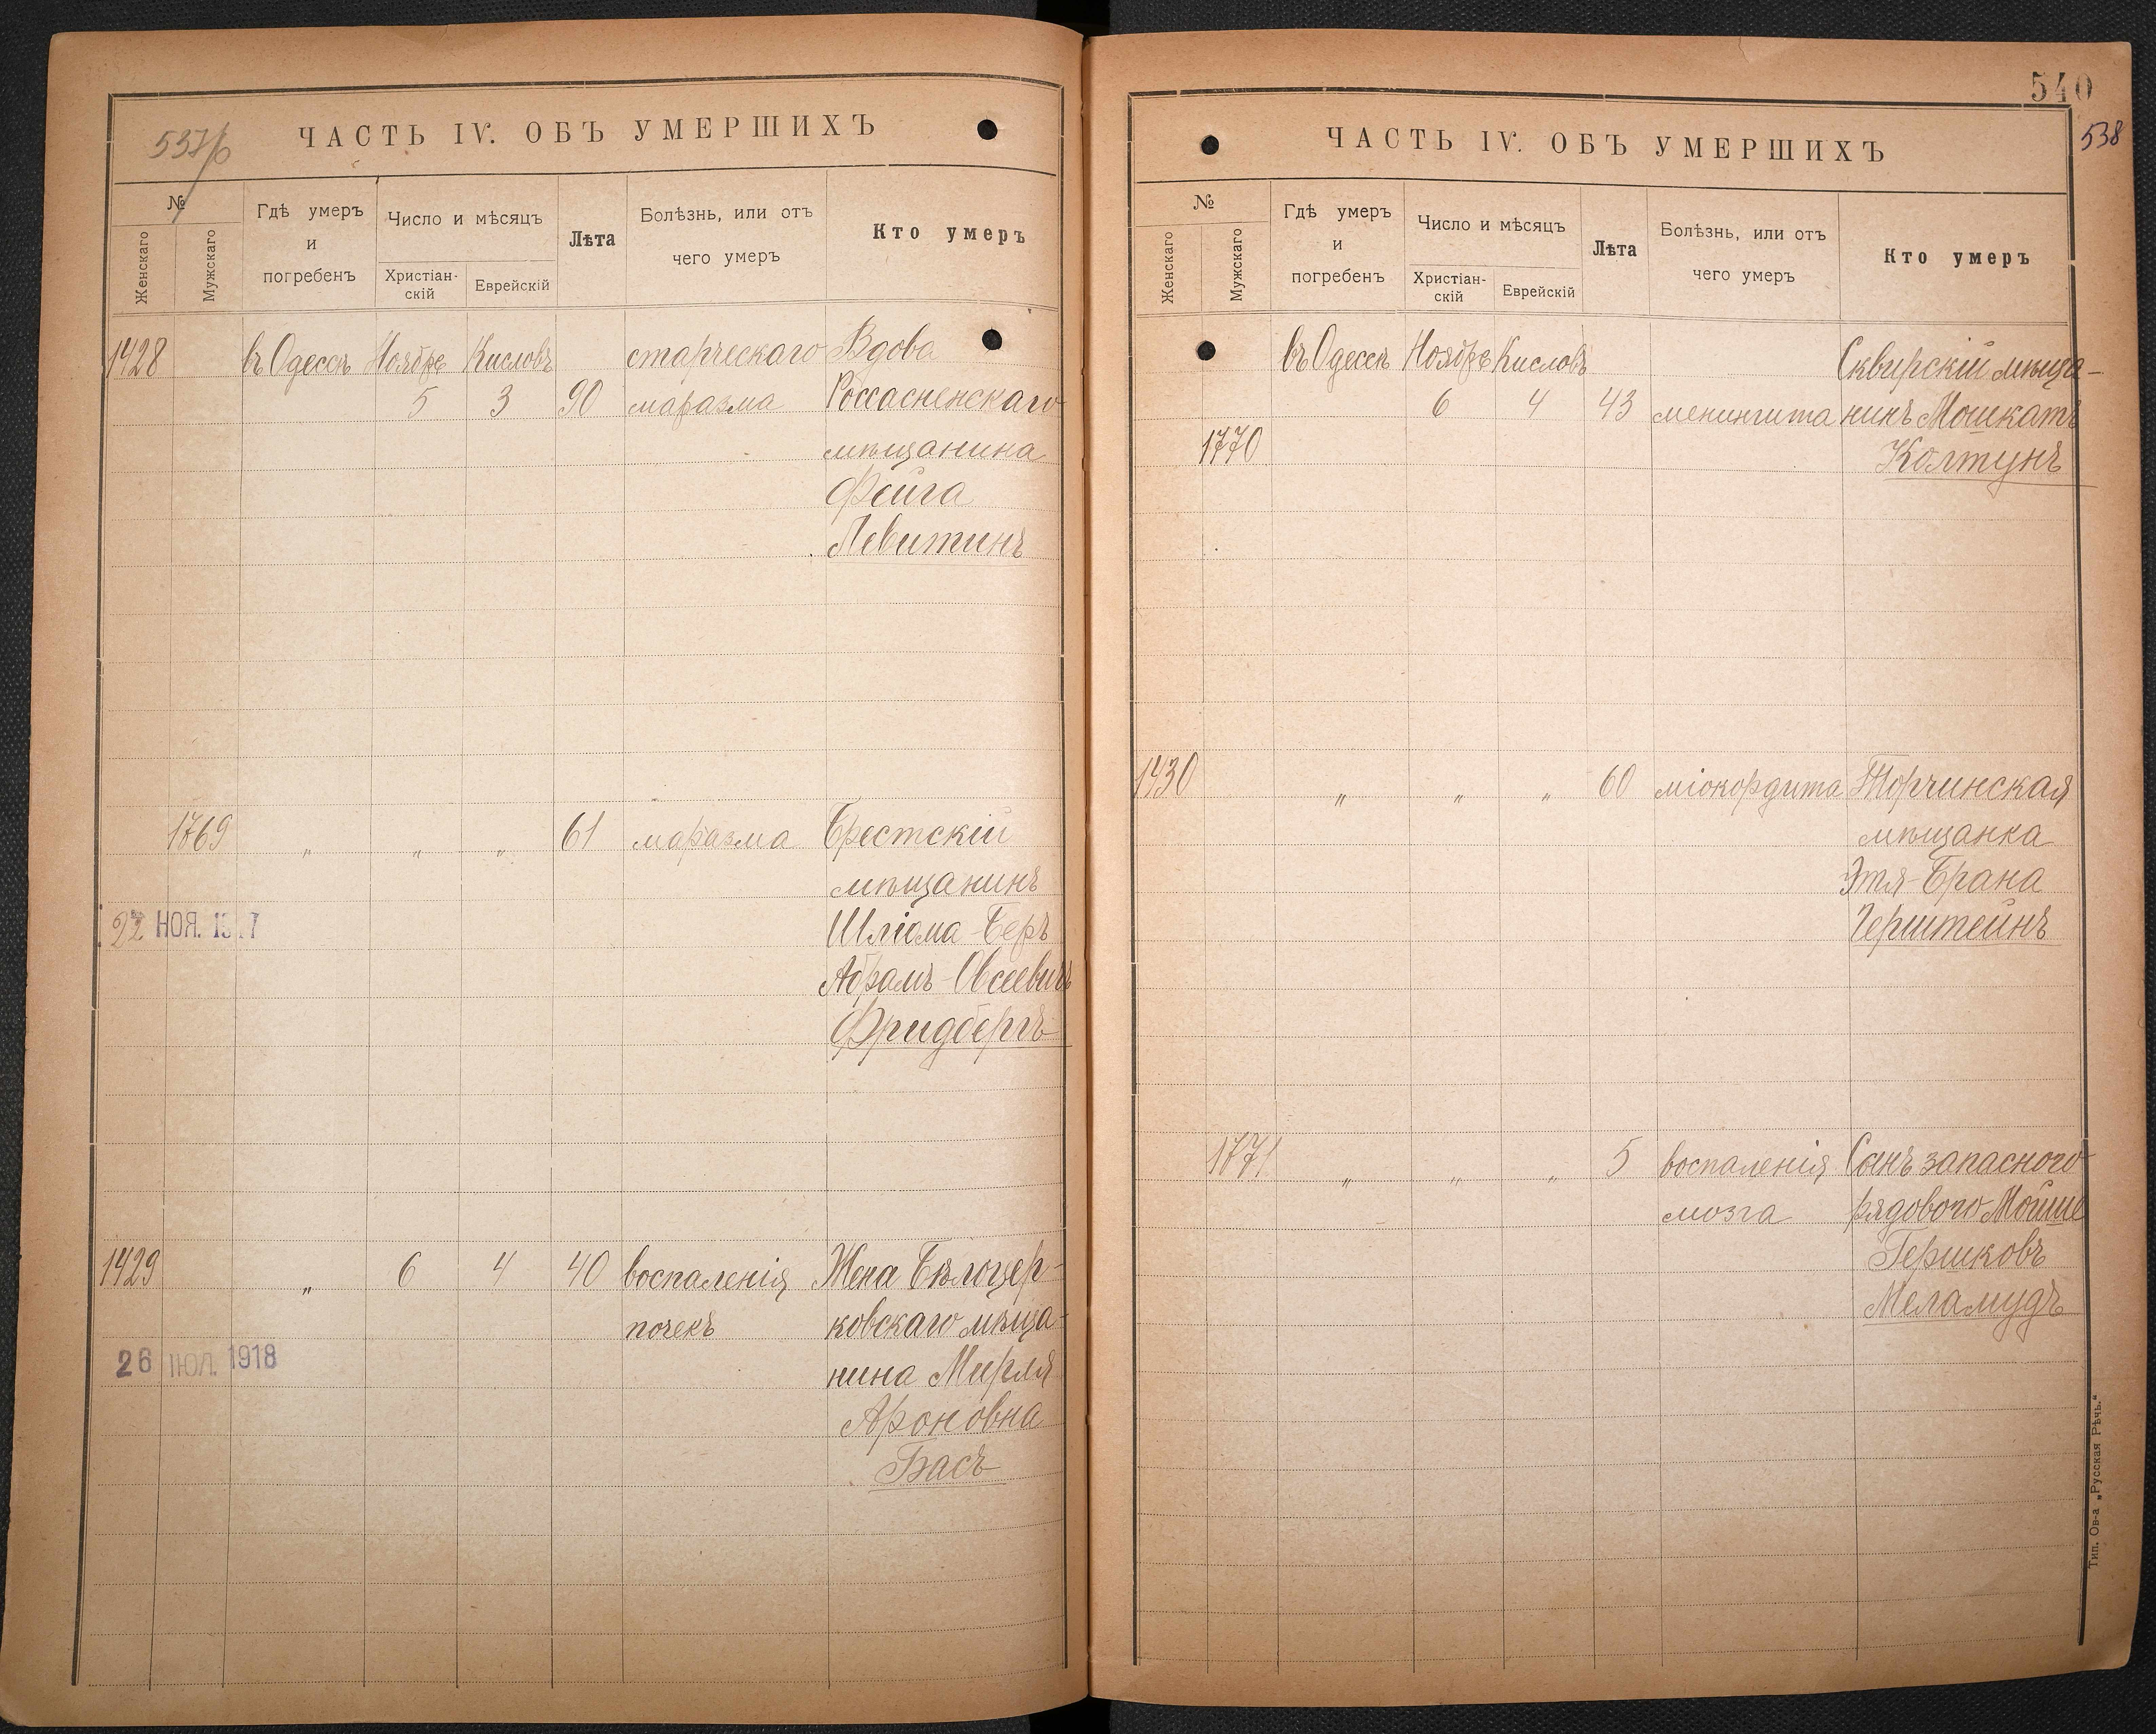 537/б
ЧАСТЬ IV. ОБЪ УМЕРШИХЪ
№
Женскаго
Мужскаго
Гдѣ умеръ
и
погребенъ
Число и мѣсяцъ
Христіан-
скій
Еврейскій
Лѣта
Болѣзнь, или отъ
чего умеръ
Кто умеръ
1428 въ Одессѣ Ноября Кисловъ старческаго Вдова
5 3 90 маразма Россасненскаго
мѣщанина
Фейга
Левитинъ
1769 „ „ „ 61 маразма Брестскій
мѣщанинъ
22 НОЯ. Шліома-Беръ
Абрамъ-Овсеевичъ
Фридбергъ
1429 „ 6 4 40 воспаленія Жена Бѣлоцер-
почекъ ковскаго мѣща-
26 ІЮЛ. 1918 нина Мирля
Ароновна
Басъ
540
538
ЧАСТЬ IV. ОБЪ УМЕРШИХЪ
№
Женскаго
Мужскаго
Гдѣ умеръ
и
погребенъ
Число и мѣсяцъ
Христіан-
скій
Еврейскій
Лѣта
Болѣзнь, или отъ
чего умеръ
Кто умеръ
въ Одессѣ Ноября Кисловъ Сквирскій мѣща-
6 4 43 менингита нинъ Мошкатъ
1770 Колтунъ
1430 „ „ „ 60 міокордита Торчинская
мѣщанка
Этя-Брана
Герштейнъ
1771 „ „ „ 5 воспаленія Сынъ запасного
мозга рядового Мойше
Гершковъ
Меламудъ
Тип. Ов-а „Русская Рѣчь.“